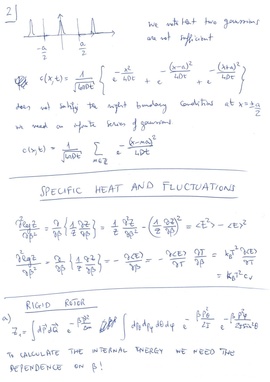 2]
we note that two gaussians
are not sufficient
-a/2 a/2
c(x,t) = 1/√(4πDt) { e^(-x²/4Dt) + e^(-(x-a)²/4Dt) + e^(-(x+a)²/4Dt) }
does not satisfy the right boundary conditions at x = ± a/2
we need an infinite series of gaussians
c(x,t) = 1/√(4πDt) Σ_{m∈Z} e^(-(x-ma)²/4Dt)
SPECIFIC HEAT AND FLUCTUATIONS
∂²log Z/∂β² = ∂/∂β { 1/Z ∂Z/∂β } = 1/Z ∂²Z/∂β² - (1/Z ∂Z/∂β)² = <E²> - <E>²
∂²log Z/∂β² = ∂/∂β { 1/Z ∂Z/∂β } = - ∂<E>/∂β = - ∂<E>/∂T ∂T/∂β = k_B T² ∂<E>/∂T
= k_B T² c_v
RIGID ROTOR
a)
TO CALCULATE THE INTERNAL ENERGY WE NEED THE
DEPENDENCE ON β!